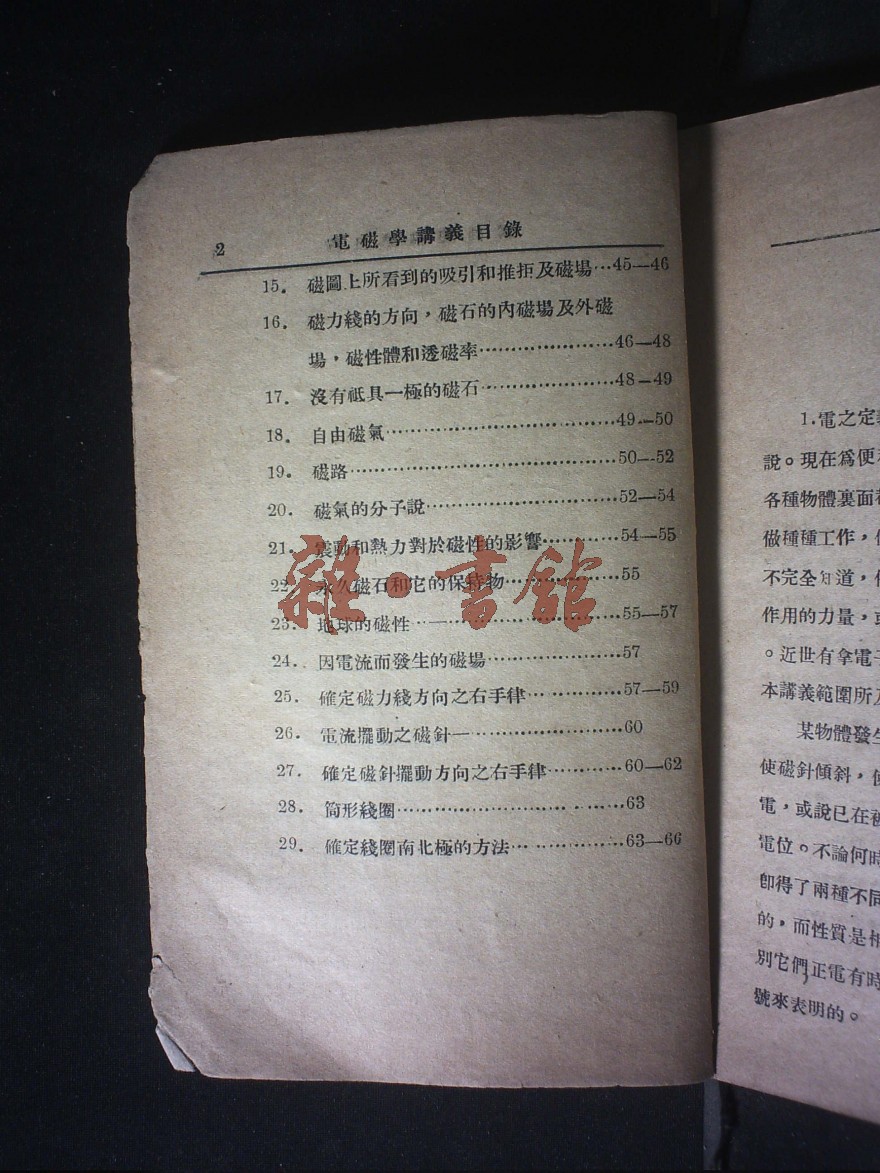 2 電磁學講義目錄
15. 磁圖上所看到的吸引和推拒及磁場…45—46
16. 磁力綫的方向，磁石的內磁場及外磁
場，磁性體和透磁率………………46—48
17. 沒有祇具一極的磁石………………48—49
18. 自由磁氣……………………………49—50
19. 磁路…………………………………50—52
20. 磁氣的分子說………………………52—54
21. 震動和熱力對於磁性的影響…………54—55
22. 永久磁石和它的保持物……………55
23. 地球的磁性…………………………55—57
24. 因電流而發生的磁場………………57
25. 確定磁力綫方向之右手律……………57—59
26. 電流擺動之磁針……………………60
27. 確定磁針擺動方向之右手律…………60—62
28. 筒形綫圈……………………………63
29. 確定綫圈南北極的方法………………63—66
雜·書館
1.電之定
說。現在爲便
各種物體裏面
做種種工作，
不完全知道，
作用的力量，
。近世有拿電
本講義範圍所
某物體發
使磁針傾斜，
電，或說已在
電位。不論何時
卽得了兩種不同
的，而性質是
別它們正電有時
號來表明的。